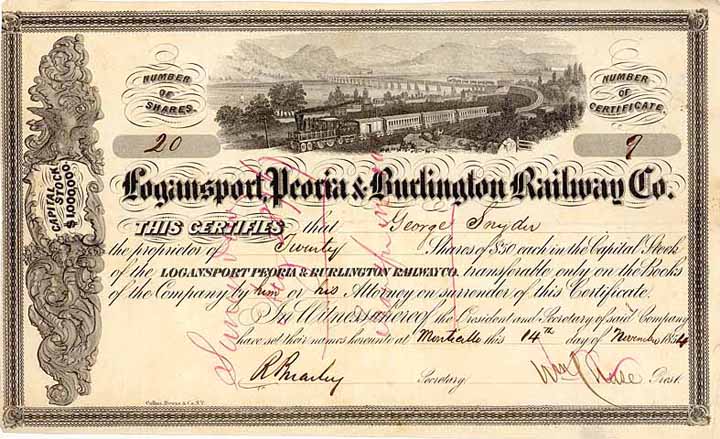 NUMBER OF SHARES.
20
NUMBER OF CERTIFICATE.
9
CAPITAL STOCK $1,000,000.
Logansport, Peoria & Burlington Railway Co.
THIS CERTIFIES that George Snyder
the proprietor of Twenty Shares of $50 each in the Capital Stock
of the LOGANSPORT PEORIA & BURLINGTON RAILWAY CO. transferable only on the Books
of the Company by him or his Attorney on surrender of this Certificate.
In Witness whereof the President and Secretary of said Company
have set their names hereunto at Monticello this 14th day of November 1854
Secretary
Prest.